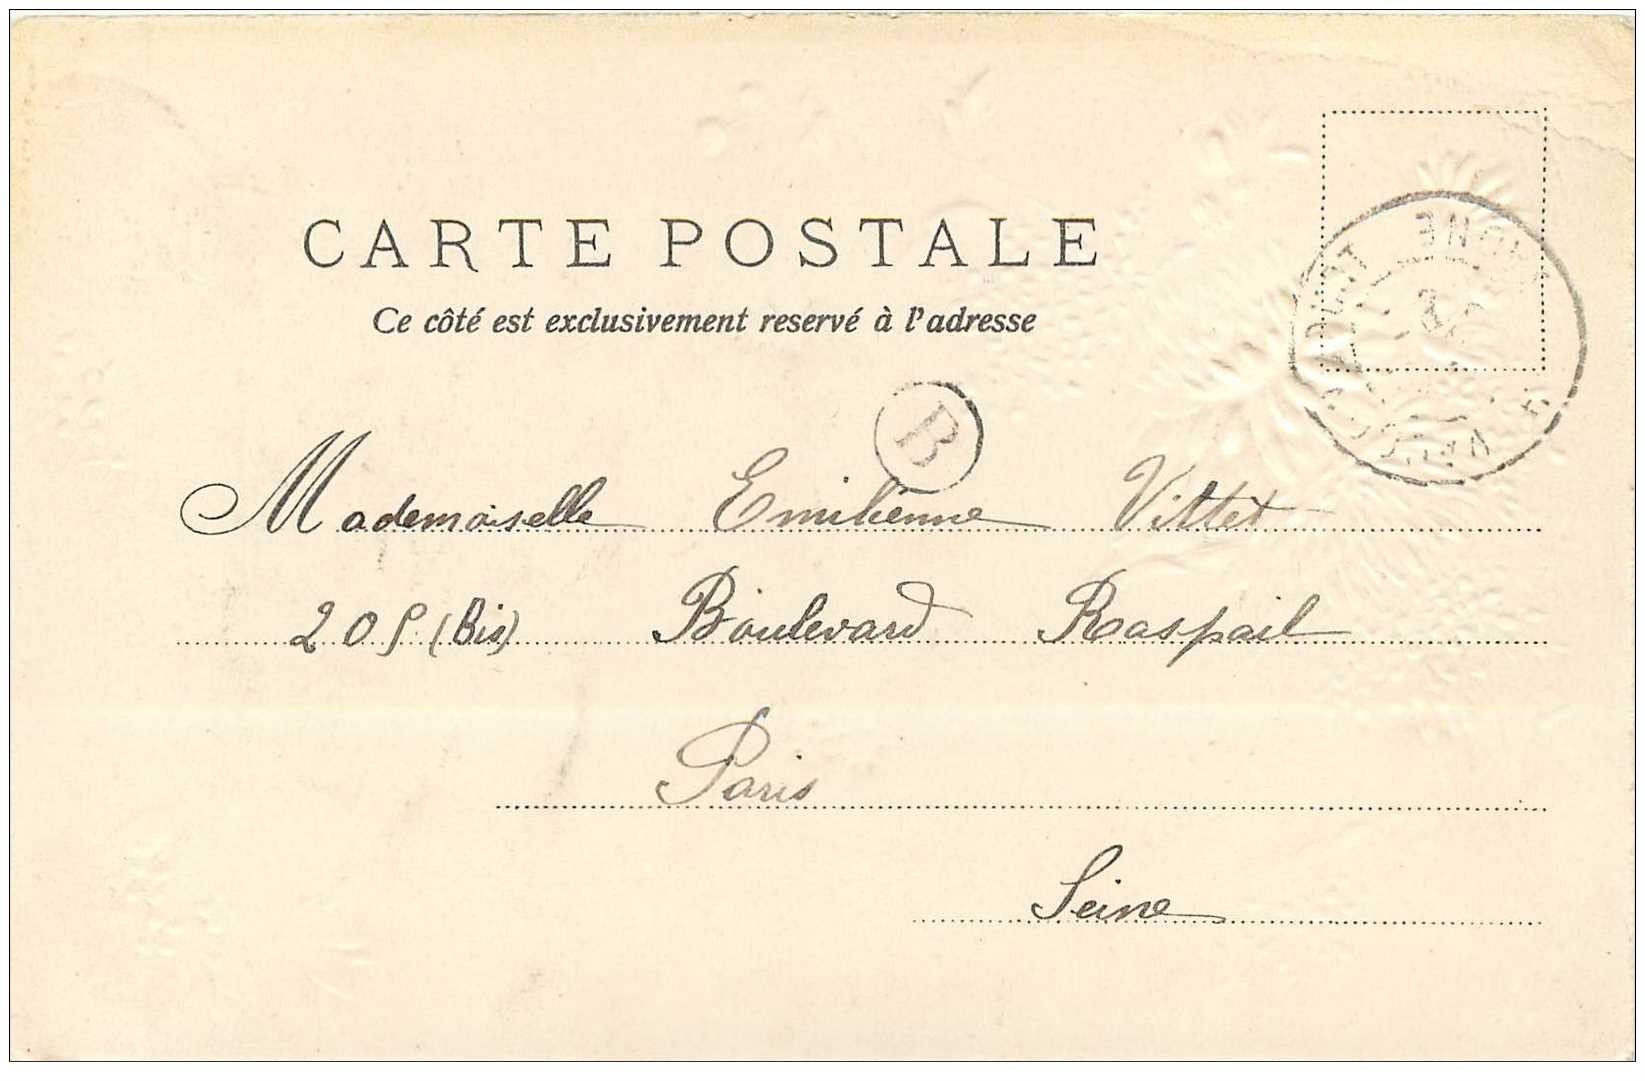 CARTE POSTALE
Ce côté est exclusivement reservé à l'adresse
B
Mademoiselle Emilienne Vittet
(Bis) Boulevard Raspail
Paris
Seine